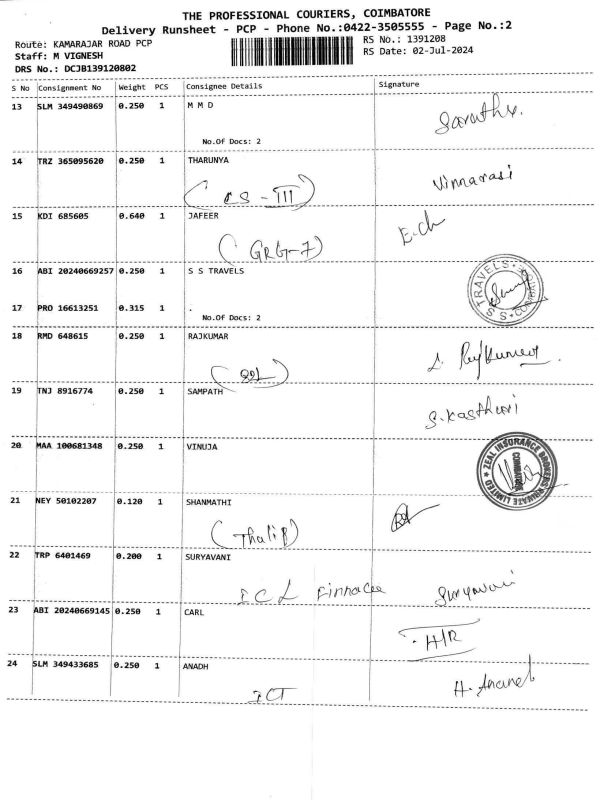 THE PROFESSIONAL COURIERS, COIMBATORE
Delivery Runsheet - PCP - Phone No.:0422-3505555 - Page No.:2
Route: KAMARAJAR ROAD PCP RS No.: 1391208
Staff: M VIGNESH RS Date: 02-Jul-2024
DRS No.: DCJB139120802
S No Consignment No Weight PCS Consignee Details Signature
13 SLM 349490869 0.250 1 M M D
No.Of Docs: 2
14 TRZ 365095620 0.250 1 THARUNYA
Vinnarasi
(CS - III)
15 KDI 685605 0.640 1 JAFEER
(GRG-7)
16 ABI 20240669257 0.250 1 S S TRAVELS
S S TRAVELS COIMBATORE
17 PRO 16613251 0.315 1 .
No.Of Docs: 2
18 RMD 648615 0.250 1 RAJKUMAR
19 TNJ 8916774 0.250 1 SAMPATH
S. Kasthuri
20 MAA 100681348 0.250 1 VINUJA
ZEAL INSURANCE BROKERS PRIVATE LIMITED
COIMBATORE
21 NEY 50102207 0.120 1 SHANMATHI
22 TRP 6401469 0.200 1 SURYAVANI
ICL Suryavani
23 ABI 20240669145 0.250 1 CARL
H/R
24 SLM 349433685 0.250 1 ANADH
ICT